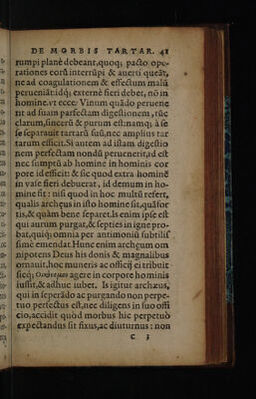 DE MORBIS TARTAR. 41
rumpi planè debeant, quoq; pacto ope-
rationes eorũ interrũpi & auerti queãt,
ne ad coagulationem & effectum malũ
perueniãt: idq; externè fieri debet, nõ in
homine. vt ecce: Vinum quãdo peruene
rit ad suam parfectam digestionem, tũc
clarum, sincerũ & purum est: namq; à se
se separauit tartarũ suũ, nec amplius tar
tarum efficit. Si autem ad istam digestio
nem perfectam nondũ peruenerit, id est
nec sumptũ ab homine in hominis cor
pore id efficit: & sic quod extra hominẽ
in vase fieri debuerat, id demum in ho-
mine fit: nisi quod in hoc multũ refert,
qualis archęus in isto homine sit, quã for
tis, & quàm bene separet. Is enim ipse est
qui aurum purgat, & septies in igne pro-
bat, quiq; omnia per antimoniũ subtilis
simè emendat. Hunc enim archęum om
nipotens Deus his donis & magnalibus
ornauit, hoc muneris ac officij ei tribuit
sicq; agere in corpore hominis
iussit, & adhuc iubet. Is igitur archæus,
qui in seperãdo ac purgando non perpe-
tuo perfectus est, nec diligens in suo offi
cio, accidit quòd morbus hic perpetuò
expectandus sit fixus, ac diuturnus: non
C 3